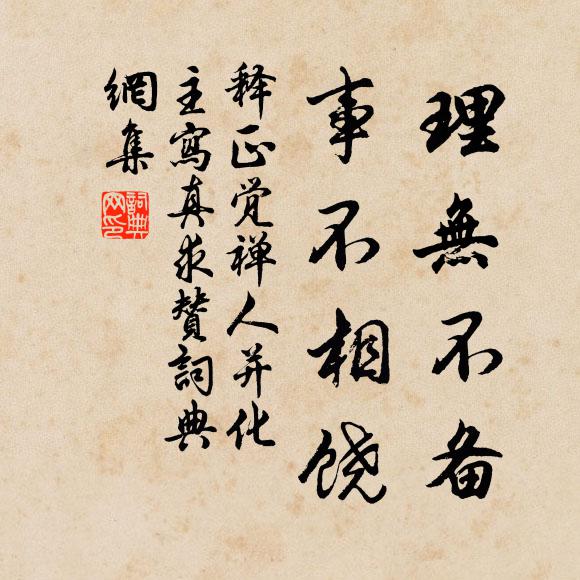 理無不备
事不相饶
释正觉禅人并化
主寫真求賛詞典
網集
詞典網印